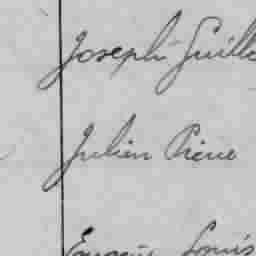 Joseph Guill
Julien Pierre
Eugène Louis